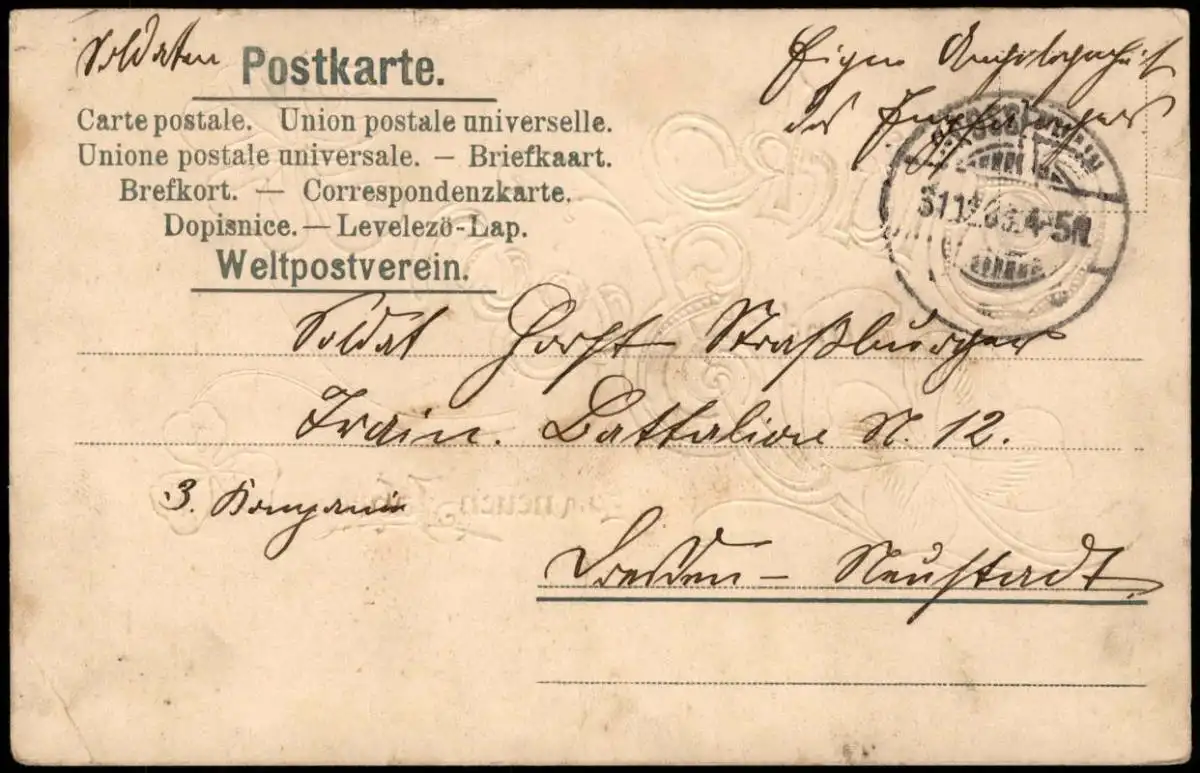 Soldaten Postkarte.
Eigene Angelegenheit
des Empfängers
Carte postale. Union postale universelle.
Unione postale universale. – Briefkaart.
Brefkort. — Correspondenzkarte.
Dopisnice. — Levelező-Lap.
Weltpostverein.
31.12.03. 4-5N.
Soldat Horst Straßburger
Train. Battalion N. 12.
3. Kompanie
Dresden – Neustadt